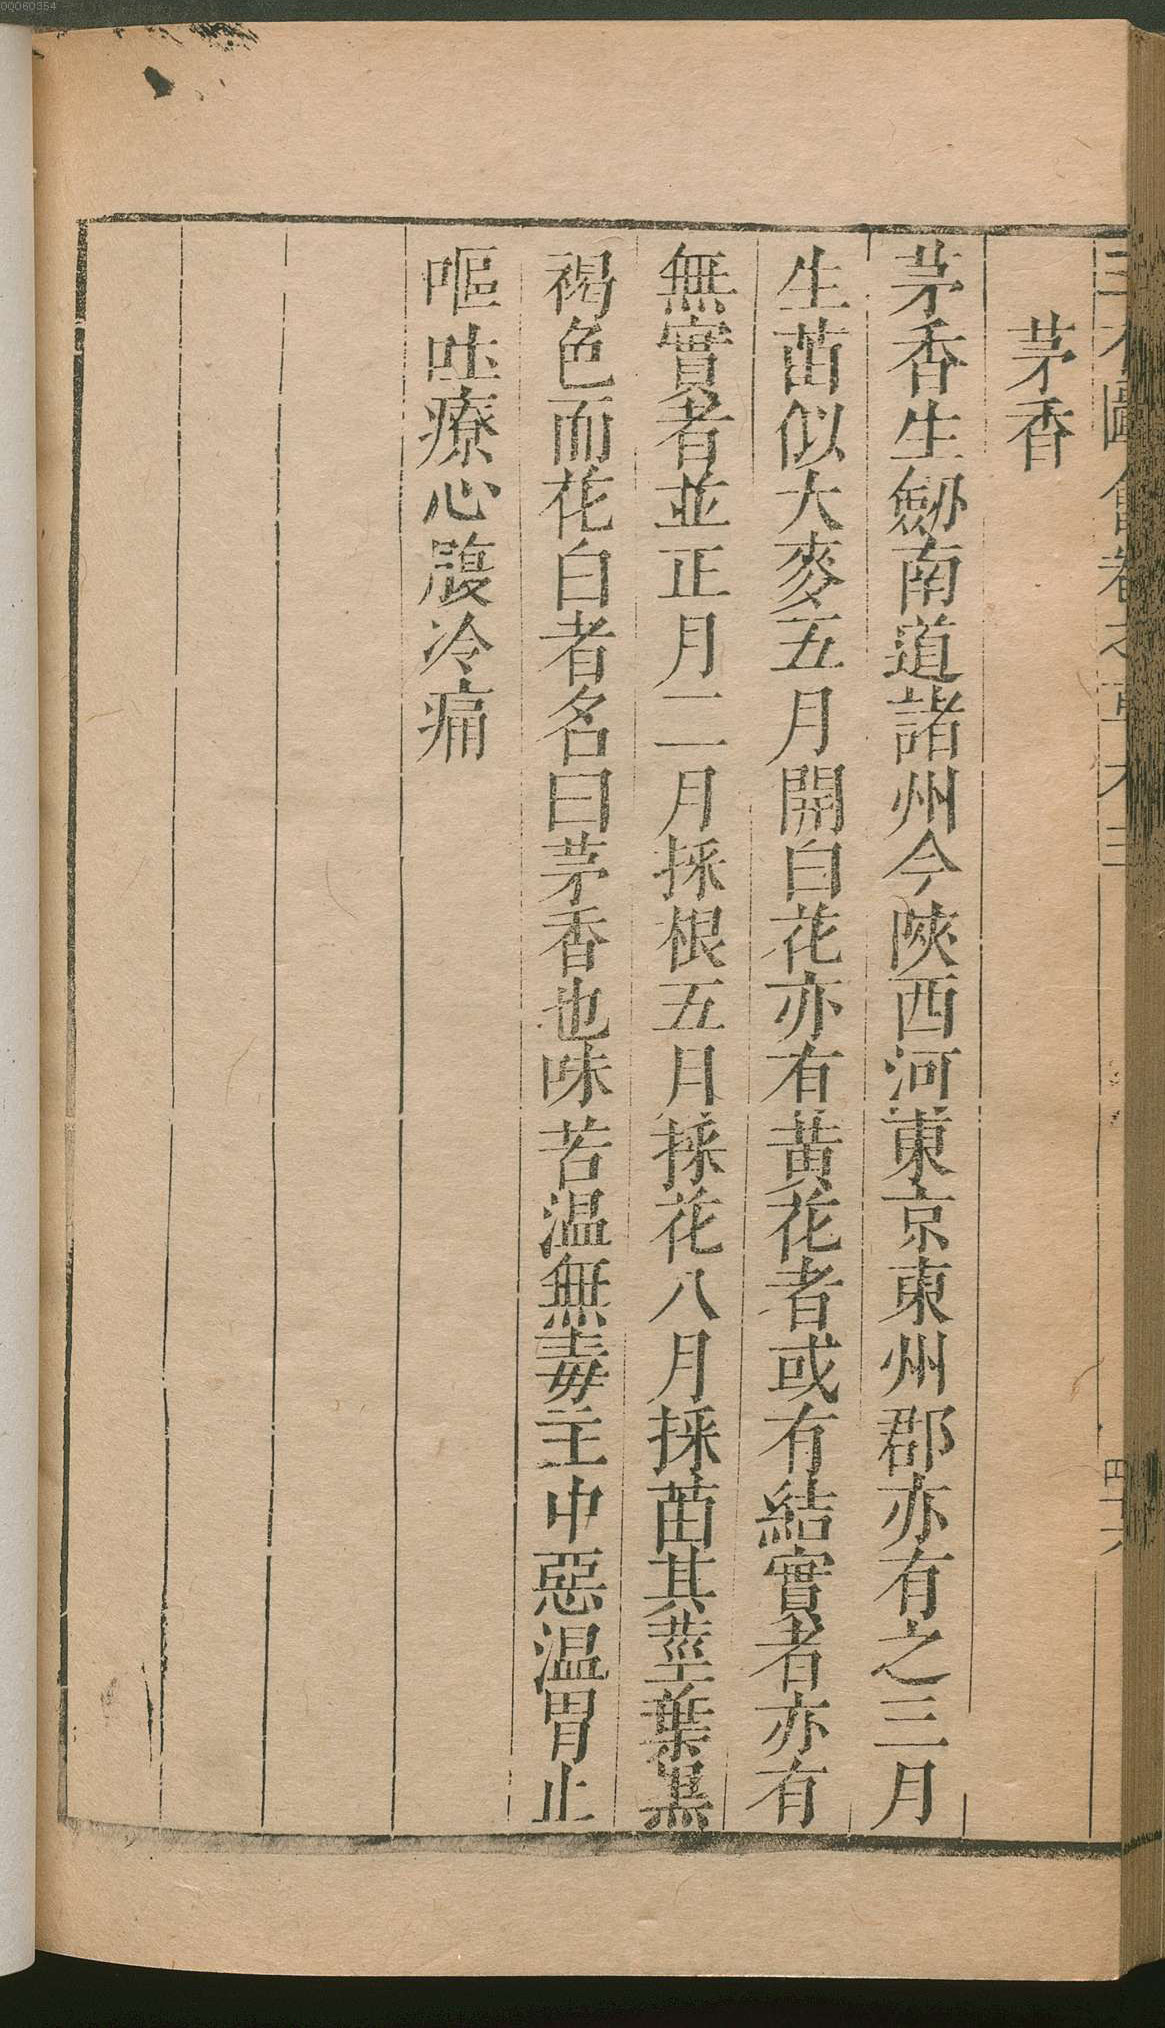 00060354
茅香
茅香生劒南道諸州今陝西河東京東州郡亦有之三月
生苗似大麥五月開白花亦有黄花者或有結實者亦有
無實者並正月二月採根五月採花八月採苗其莖葉黒
褐色而花白者名曰茅香也味苦温無毒主中惡温胃止
嘔吐療心腹冷痛